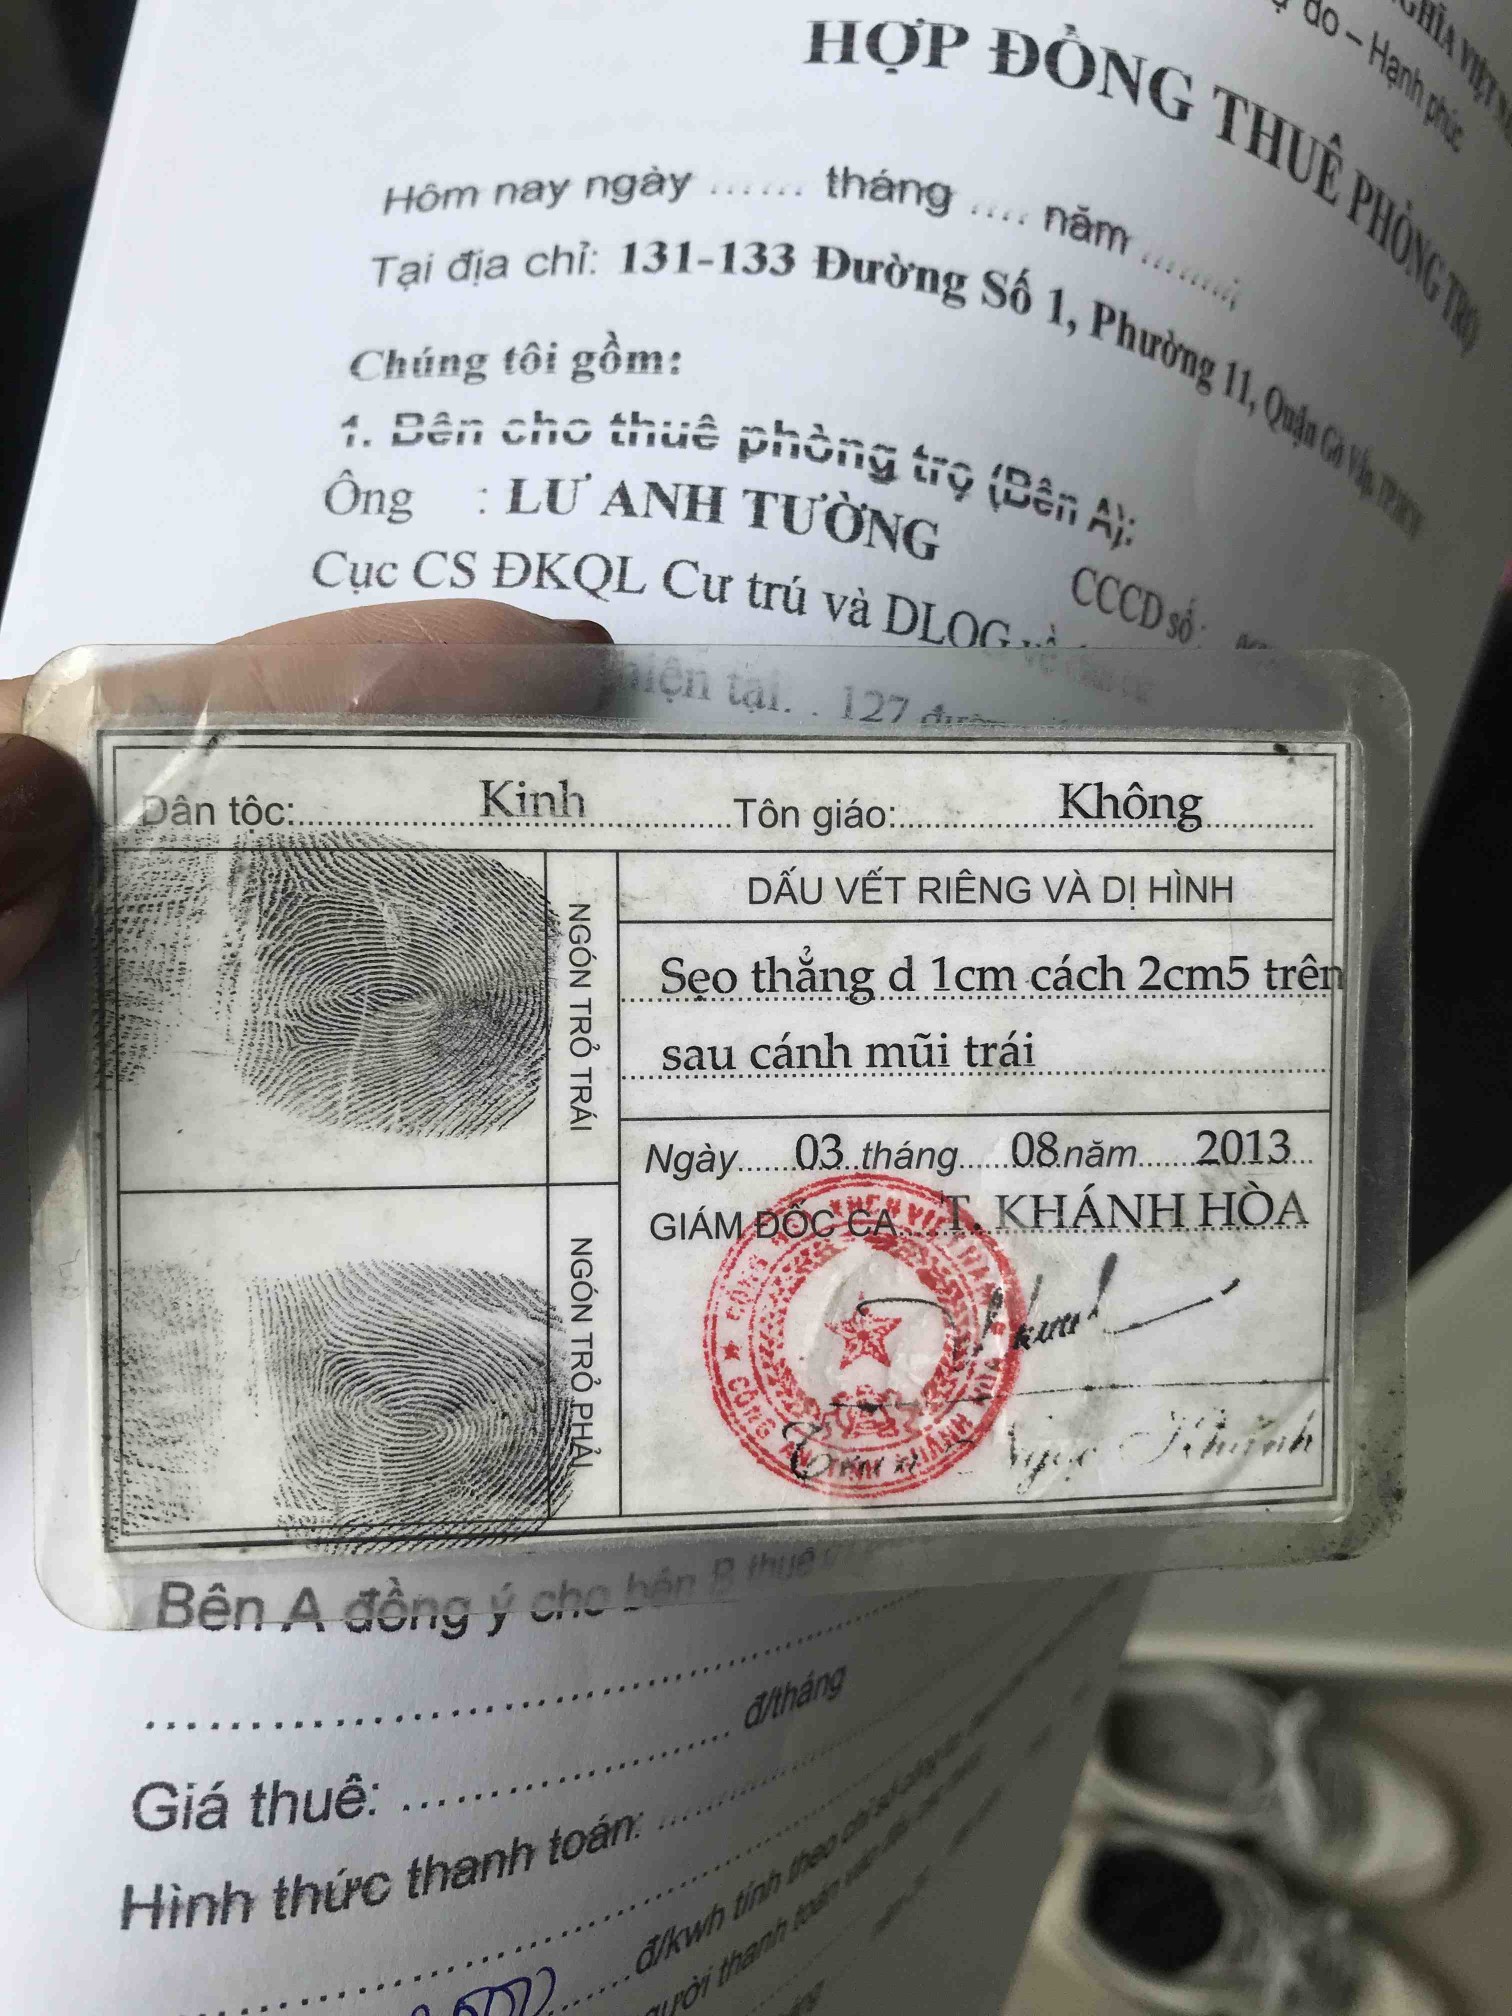 NGHĨA VIỆT
do – Hạnh phúc
HỢP ĐỒNG THUÊ PHÒNG TRỌ
Hôm nay ngày ...... tháng .... năm .......
Tại địa chỉ: 131-133 Đường Số 1, Phường 11, Quận Gò Vấp,
Chúng tôi gồm:
1. Bên cho thuê phòng trọ (Bên A):
Ông : LƯ ANH TƯỜNG CCCD số:
Cục CS ĐKQL Cư trú và DLQG về
hiện tại. . 127
Dân tộc: Kinh Tôn giáo: Không
NGÓN TRỎ TRÁI
NGÓN TRỎ PHẢI
DẤU VẾT RIÊNG VÀ DỊ HÌNH
Sẹo thẳng d 1cm cách 2cm5 trên
sau cánh mũi trái
Ngày 03 tháng 08 năm 2013
GIÁM ĐỐC CA T. KHÁNH HÒA
Ngọc Khánh
Bên A đồng ý cho bên B thuê
đ/tháng
Giá thuê:
Hình thức thanh toán:
đ/kwh tính theo chỉ số
người thanh toán
tháng